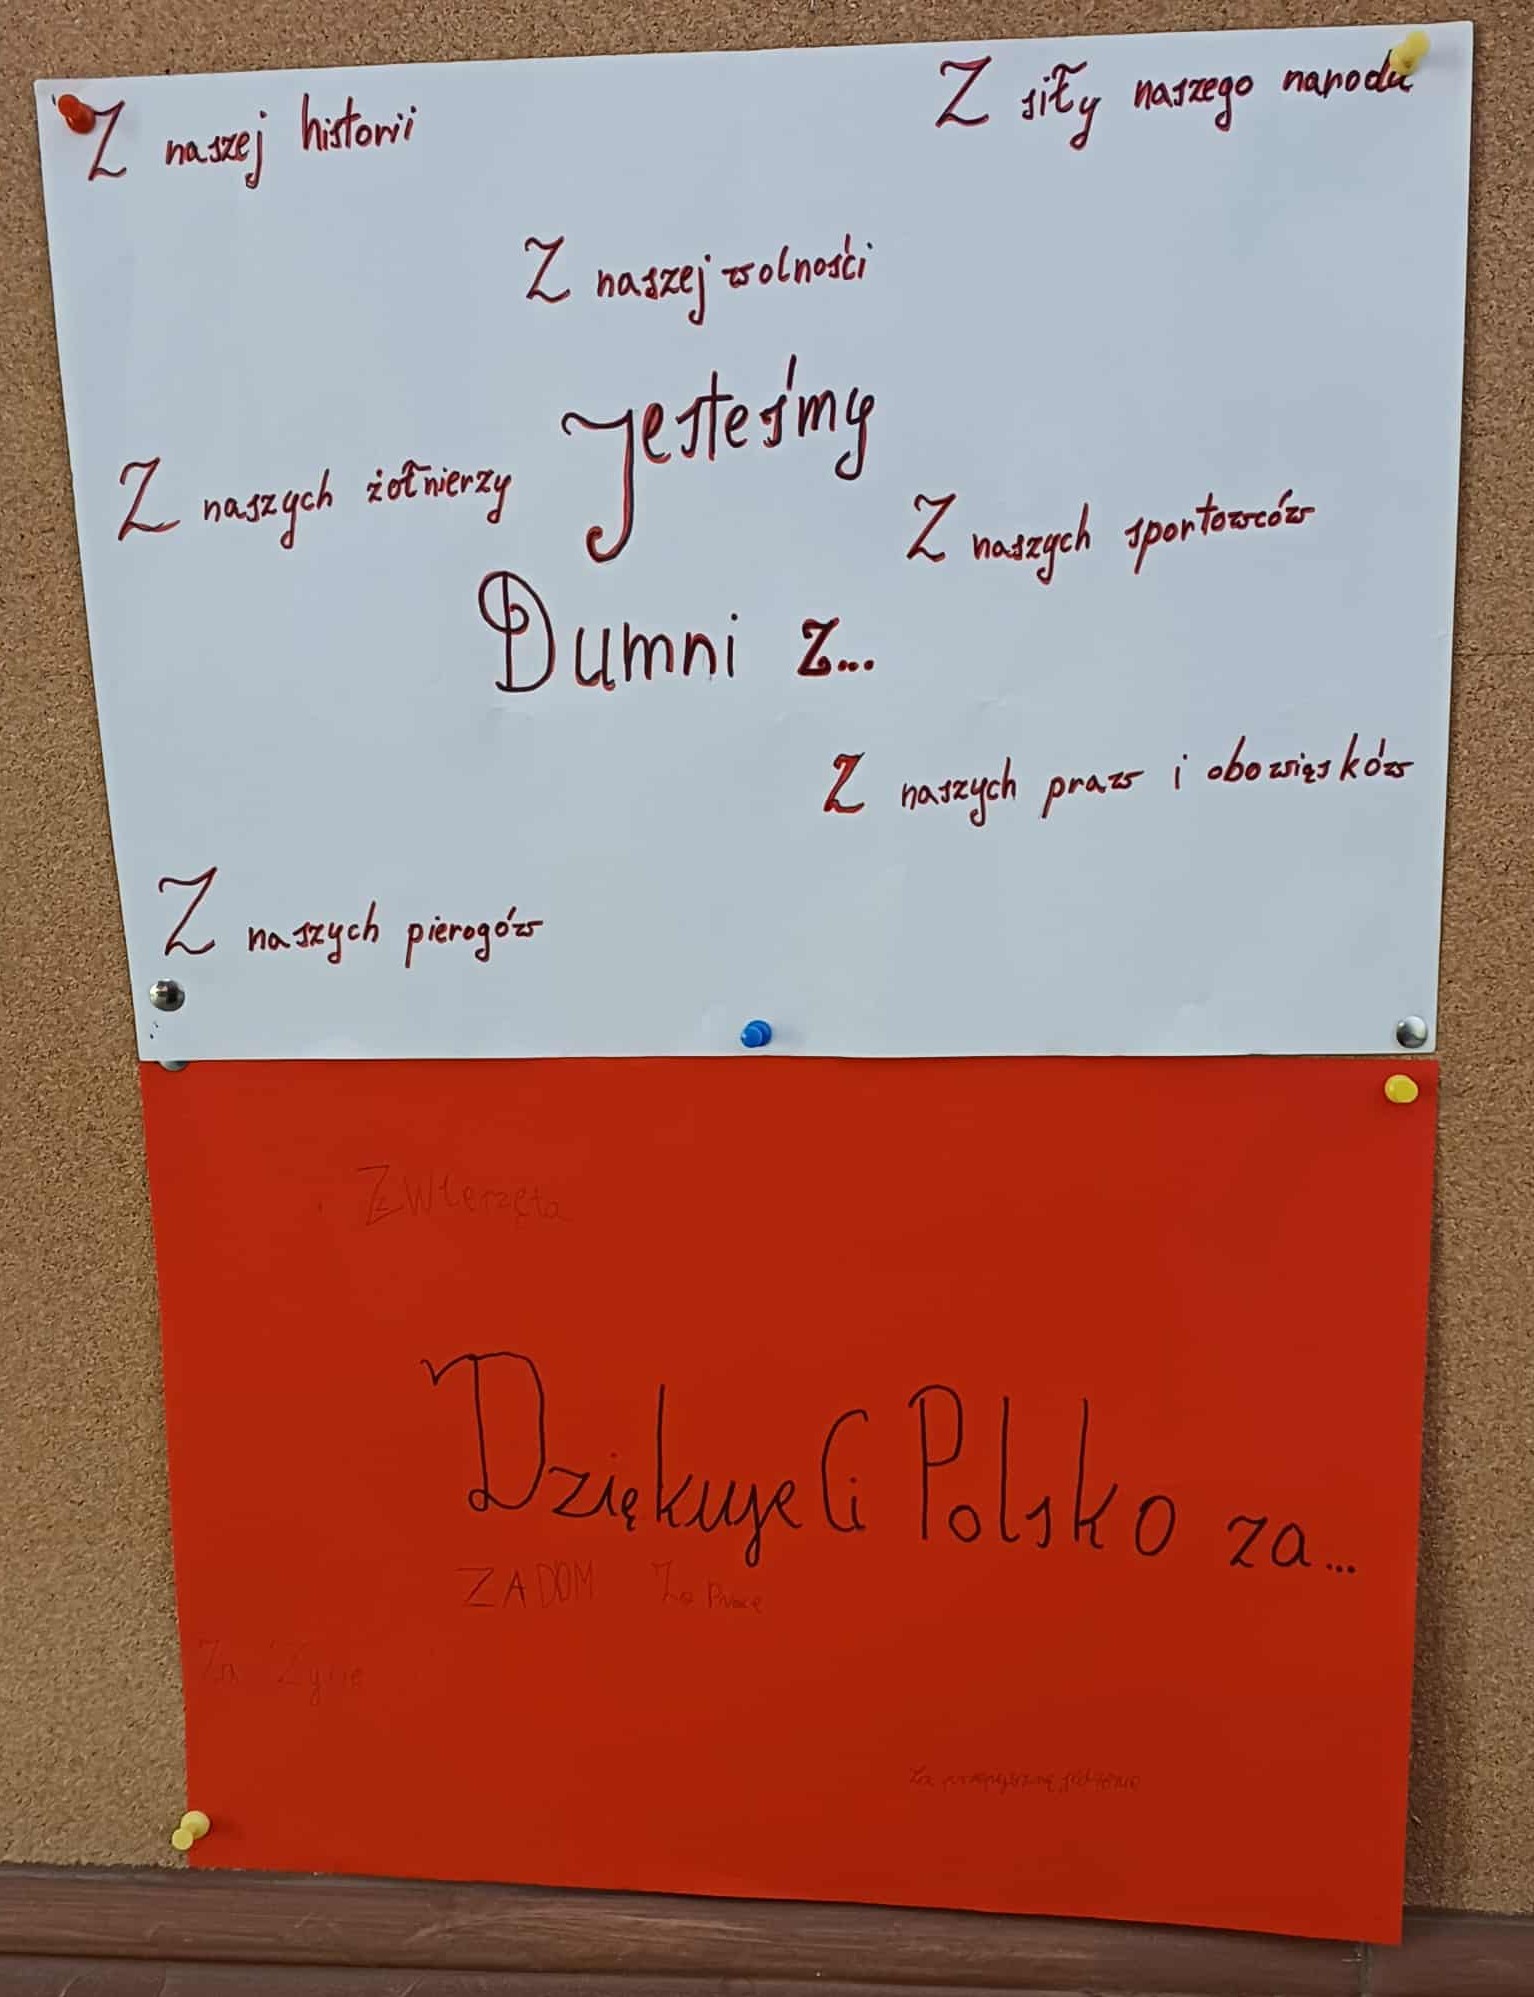 Z naszej historii
Z siły naszego narodu
Z naszej wolnośći
Jesteśmy
Z naszych żołnierzy
Z naszych sportowców
Dumni z...
Z naszych praw i obowiąsków
Z naszych pierogów
Zwierzęta
Dziękuje Ci Polsko za...
ZA DOM Za Pracę
Za Życie
Za przepyszne jedzenie